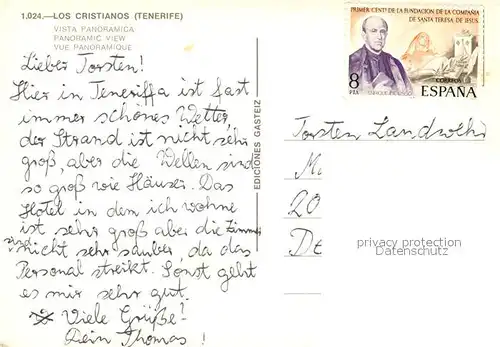 1.024.—LOS CRISTIANOS (TENERIFE)
VISTA PANORAMICA
PANORAMIC VIEW
VUE PANORAMIQUE
Lieber Torsten!
Hier in Teneriffa ist fast
immer schönes Wetter
der Strand ist nicht sehr
groß, aber die Wellen sind
so groß wie Häuser. Das
Hotel in dem ich wohne
ist sehr groß aber die Zimmer
sind nicht sehr sauber, da das
Personal streikt. Sonst geht
es mir sehr gut.
Viele Grüße!
Dein Thomas!
EDICIONES GASTEIZ
PRIMER CENTº DE LA FUNDACION DE LA COMPAÑIA
DE SANTA TERESA DE JESUS
8
PTA
CORREOS
ESPAÑA
Torsten Landwehr
20
privacy protection
Datenschutz